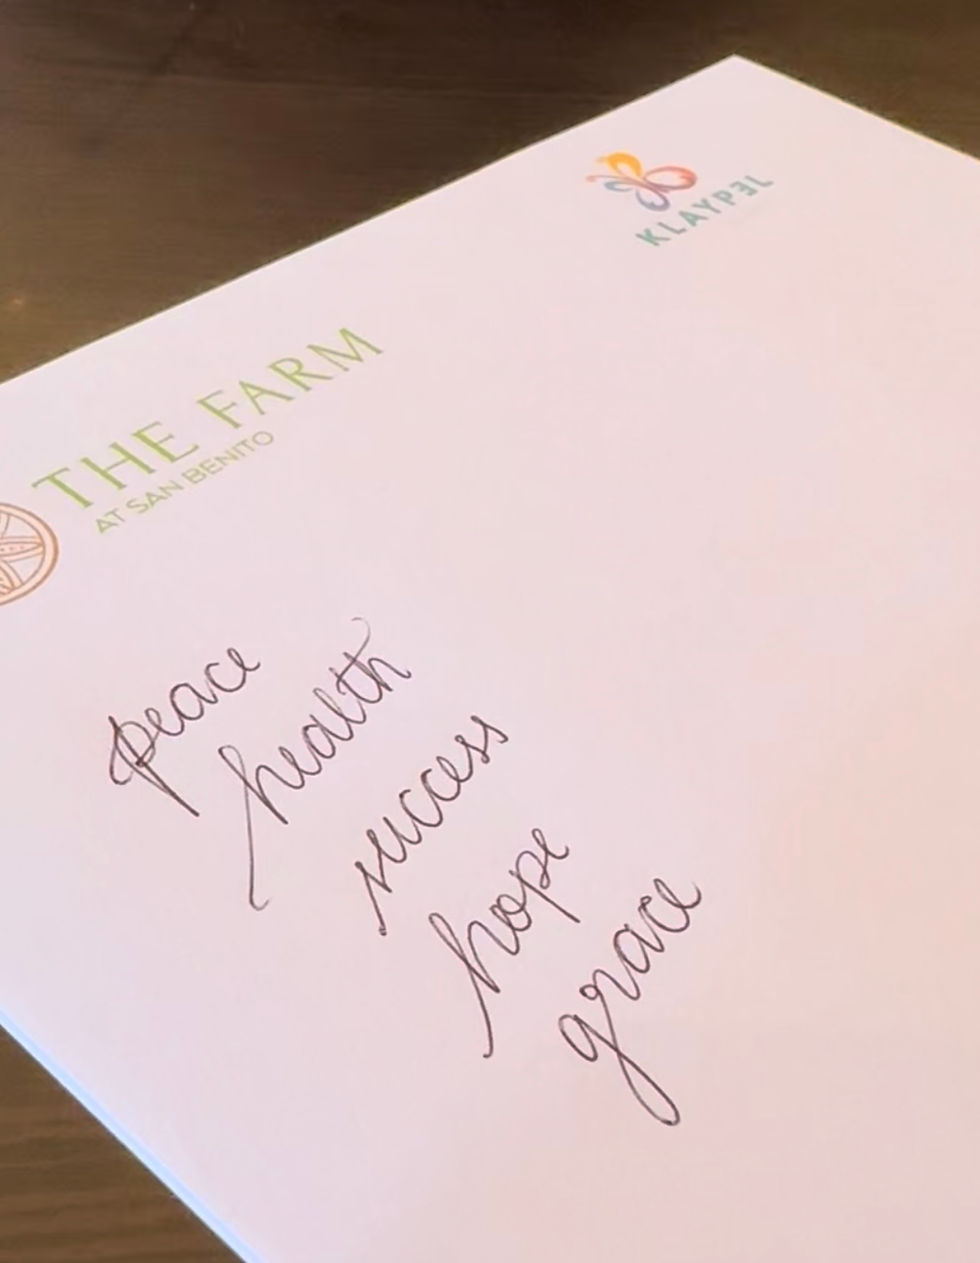 KLAYPƎL
THE FARM
AT SAN BENITO
peace
health
success
hope
grace